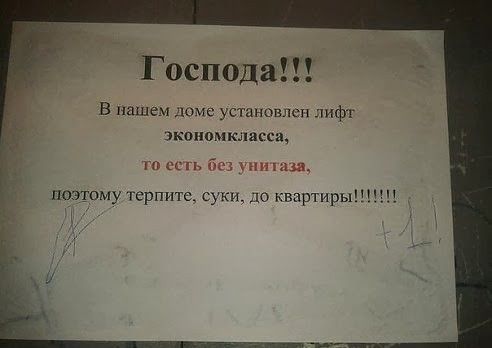 Господа!!!
В нашем доме установлен лифт
экономкласса,
то есть без унитаза,
поэтому терпите, суки, до квартиры!!!!!!!
+1!